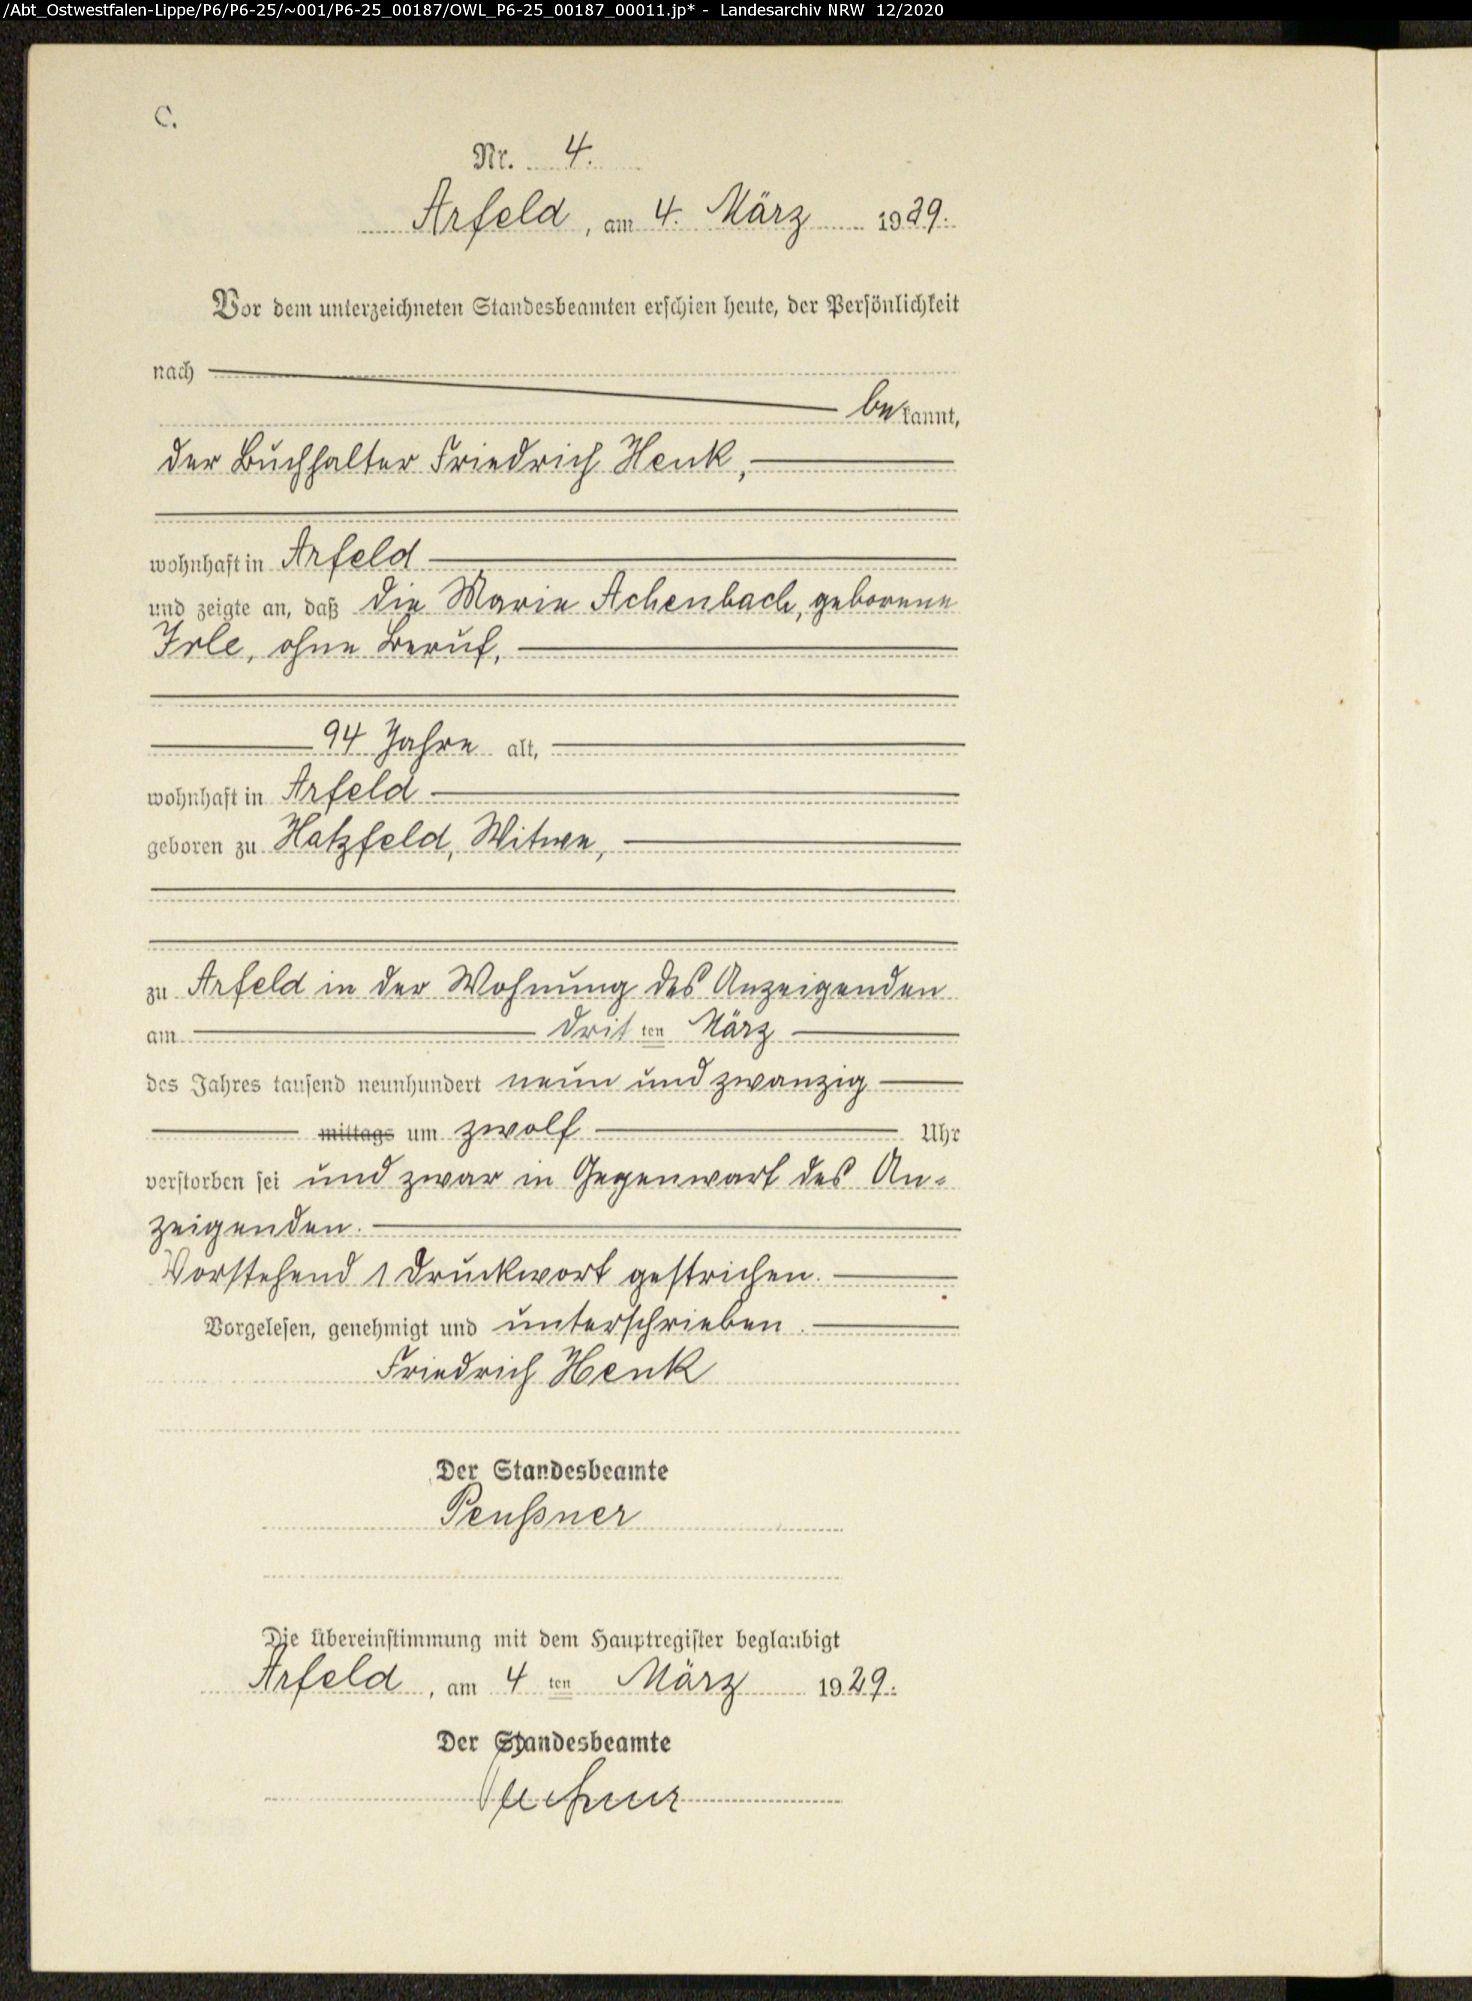 /Abt_Ostwestfalen-Lippe/P6/P6-25/~001/P6-25_00187/OWL_P6-25_00187_00011.jp* - Landesarchiv NRW 12/2020
C.
Nr. 4.
Arfeld, am 4. März 1929.
Vor dem unterzeichneten Standesbeamten erschien heute, der Persönlichkeit
nach
bekannt,
der Buchhalter Friedrich Henk,
wohnhaft in Arfeld
und zeigte an, daß die Marie Achenbach, geborene
Irle, ohne Beruf,
94 Jahre alt,
wohnhaft in Arfeld
geboren zu Hatzfeld, Witwe,
zu Arfeld in der Wohnung des Anzeigenden
am dritten März
des Jahres tausend neunhundert neun und zwanzig
mittags um zwölf Uhr
verstorben sei und zwar in Gegenwart des An-
zeigenden.
Vorstehend 1 Druckwort gestrichen.
Vorgelesen, genehmigt und unterschrieben.
Friedrich Henk
Der Standesbeamte
Peußner
Die Übereinstimmung mit dem Hauptregister beglaubigt
Arfeld, am 4ten März 1929.
Der Standesbeamte
Peußner